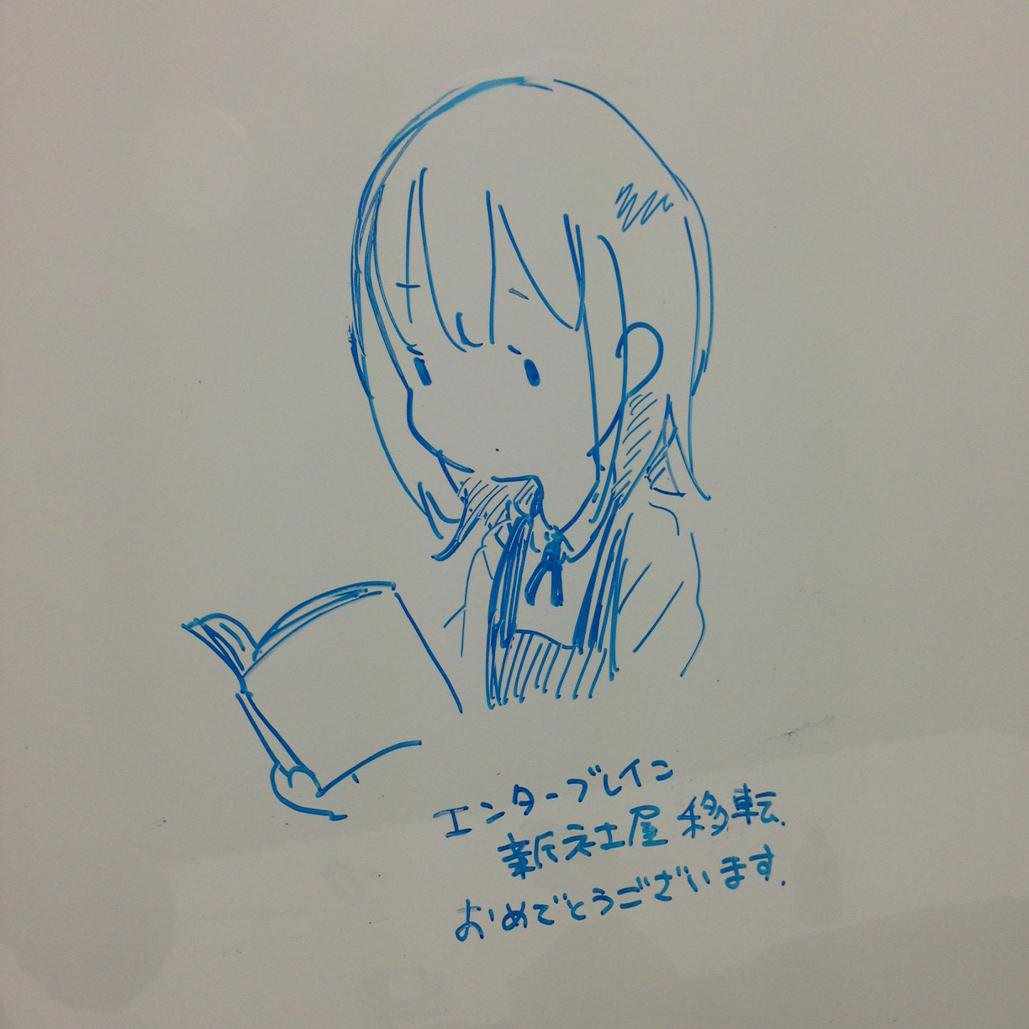 エンターブレイン
新社屋移転
おめでとうございます.